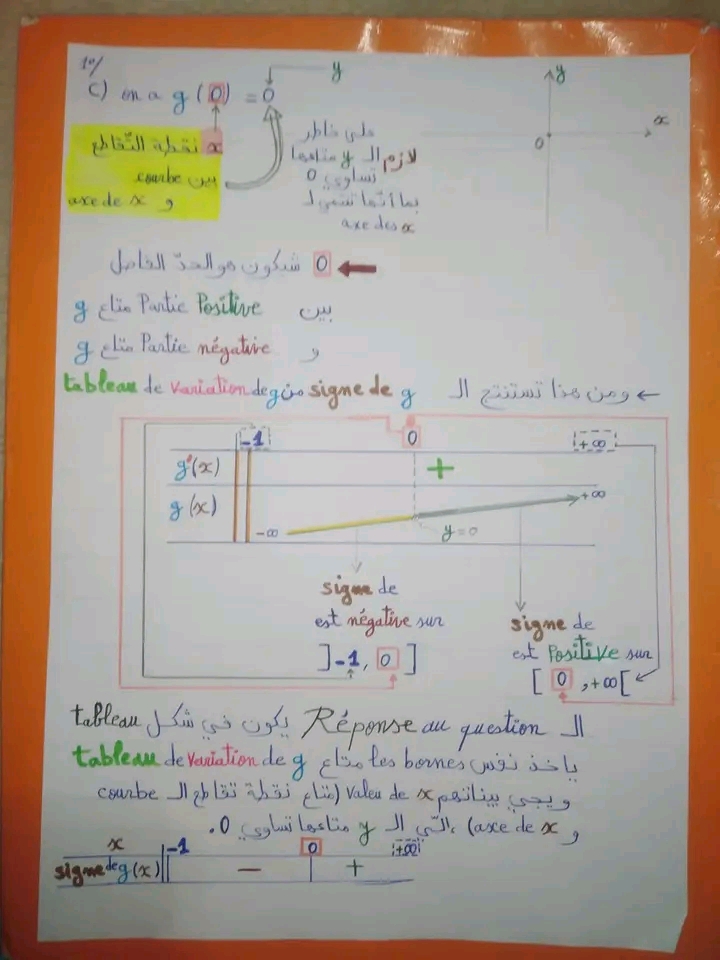 1°/
y
c) on a g (0) = 0
x نقطة التقاطع
بين courbe
و axe de x
على خاطر
لازم الـ y متاعها
تساوي 0
بما أنّها تنتمي لـ
axe des x
y
x
0
0 شيكون هو الحدّ الفاصل
بين Partie Positive متاع g
و Partie négative متاع g
← ومن هذا تستنتج الـ signe de g من tableau de variation de g
-1 0 +∞
g'(x) +
g(x) -∞ y=0 +∞
signe de
est négative sur
]-1, 0]
signe de
est Positive sur
[0, +∞[
الـ Réponse au question يكون في شكل tableau
ياخذ نفس les bornes متاع tableau de variation de g
و يجي بيناتهم valeu de x (متاع نقطة تقاطع الـ courbe
و axe de x)، الّي الـ y متاعها تساوي 0.
x -1 0 +∞
signe de g(x) − +